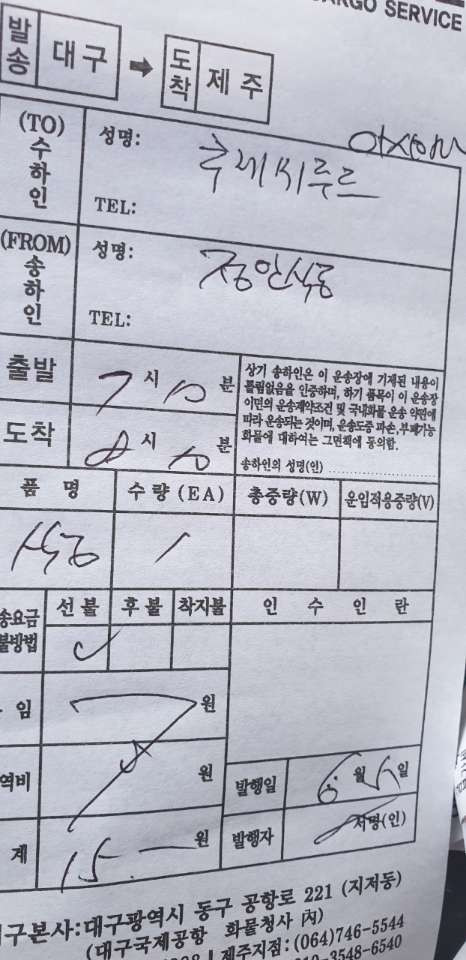 CARGO SERVICE
발송 대구 ➡ 도착 제주
(TO) 수하인 성명: 후레쉬푸르
TEL:
(FROM) 송하인 성명: 정안식품
TEL:
출발 7시 10분
도착 8시 10분
상기 송하인은 이 운송장에 기재된 내용이
틀림없음을 인증하며, 하기 품목이 이 운송장
이면의 운송제약조건 및 국내화물 운송 약관에
따라 운송되는 것이며, 운송도중 파손, 부패가능
화물에 대하여는 그면책에 동의함.
송하인의 성명(인)
품명 수량(EA) 총중량(W) 운임적용중량(V)
식품 1
송요금 불방법 선불 후불 착지불 인수인란
✓
임 원
역비 원
계 15.— 원
발행일 6월 5일
발행자 서명(인)
구본사:대구광역시 동구 공항로 221 (지저동)
(대구국제공항 화물청사 內)
제주지점:(064)746-5544
3548-6540